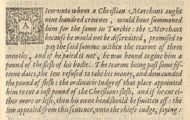 A Iew vnto whom a Christian Merchant ought
nine hundred crownes, would haue summoned
him for the same in Turckie: the Merchant
because he would not be discredited, promised to
pay the said summe within the tearme of three
months, and if he paied it not, he was bound to giue him a
pound of the flesh of his bodie. The tearme being past some fif-
teene daies, the Iew refused to take his money, and demaunded
the pound of flesh: the ordinarie Iudge of that place appointed
him to cut a iust pound of the Christians flesh, and if he cut ei-
ther more or lesse, then his owne head should be smitten off: the
Iew appealed from this sentence, vnto the chiefe iudge, saying: